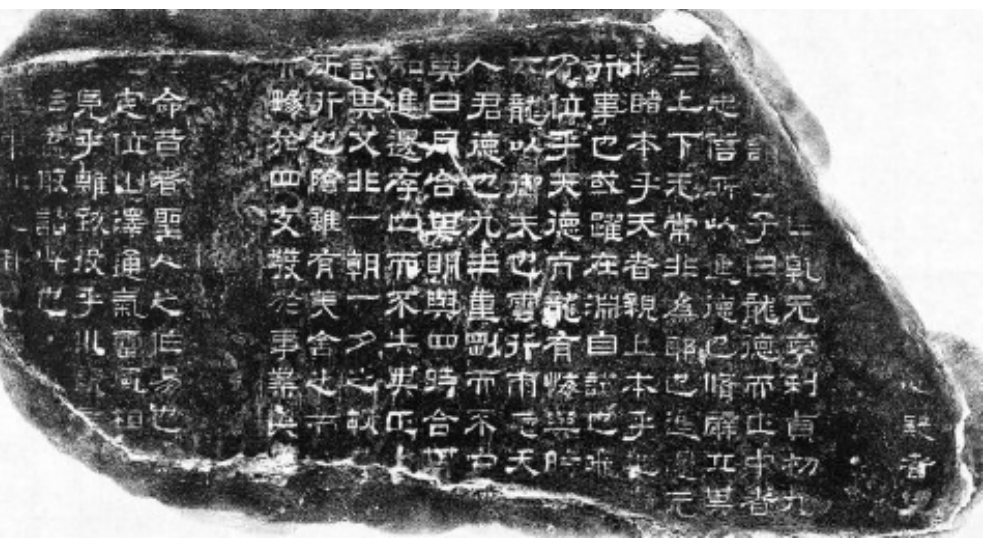 心疑者
乾元亨利貞初九
子曰龍德而正中者
忠信所以進德也脩辭立其
三上下无常非為邪也進退无
物睹本乎天者親上本乎地
行事也或躍在淵自試也飛
乃位乎天德亢龍有悔與時
六龍以御天也雲行雨施天
人君德也九三重剛而不中
與日月合其明與四時合其
知進退存亡而不失其正
試其父非一朝一夕之故
所行也陰雖有美含之以
暢於四支發於事業美
命昔者聖人之作易也
定位山澤通氣雷風相
見乎離致役乎巛
也